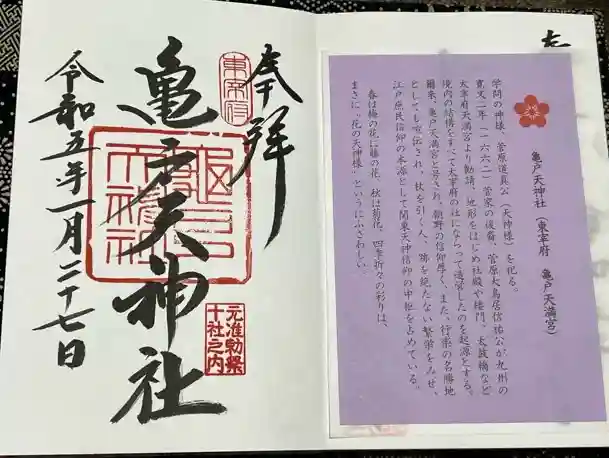 奉拝
東宰府
亀戸天神社
亀戸天神社
元准勅祭
十社之内
令和五年一月二十七日
亀戸天神社(東宰府 亀戸天満宮)
学問の神様、菅原道真公(天神様)を祀る。
寛文二年(一六六二)菅家の後裔、菅原大鳥居信祐公が九州の
太宰府天満宮より勧請、地形をはじめ社殿や楼門、太鼓橋など
境内の結構をすべて太宰府の社にならって造営したのを起源とする。
爾来、亀戸天満宮と号され、朝野の信仰厚く、また、行楽の名勝地
としても喧伝され、杖を引く人、跡を絶たない繁栄をみせ、
江戸庶民信仰の本源として関東天神信仰の中枢を占めている。
春は梅の花に藤の花、秋は菊花、四季折々の彩りは、
まさに"花の天神様"というにふさわしい。